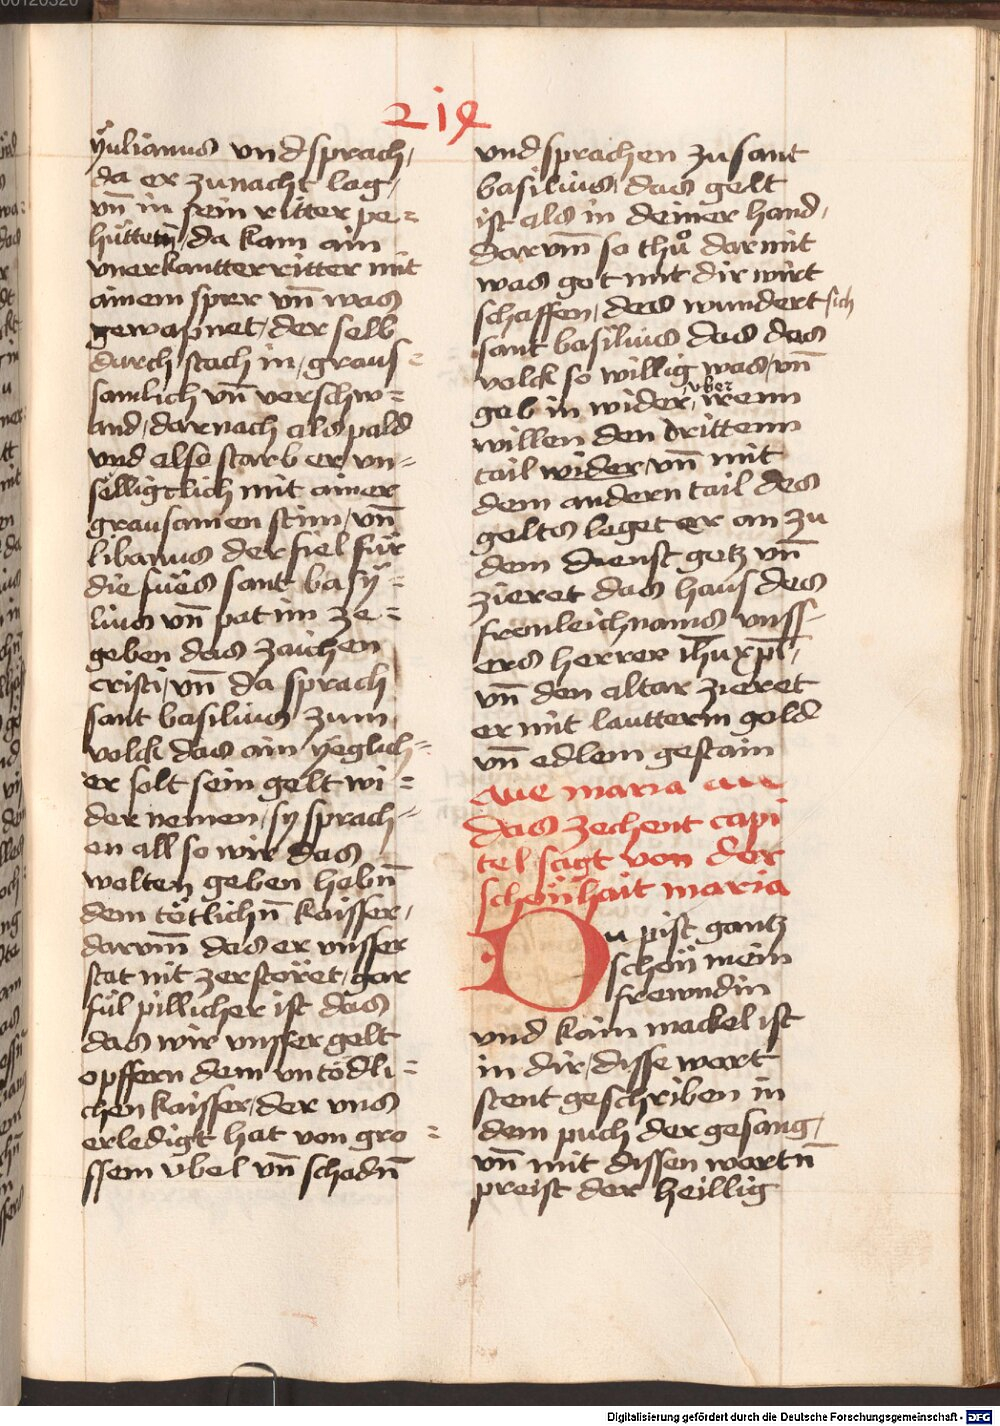 00126320
214
yulianus vnd sprach,
da er zu nacht lag,
vn̄ in sein ritter pe=
hüttetn̄, da kam ain
vnerkantter ritter mit
ainem sper vn̄ was
gewapnet, der selb
durch stach in, graus=
samlich vn̄ verschw=
and, darnach als pald
vnd also starb er vn=
sëlligklich mit ainer
grausamen stim, vn̄
libanius der fiel für
die füës sant basÿ=
lius vn̄ pat im ze=
geben das zaichen
cristi, vn̄ da sprach
sant basilius zum
volck das ain ÿeglich=
er solt sein gelt wi=
der nemen, sy sprach=
en all so wir das
wolten geben hebn̄
dem tötlichn̄ kaisser,
darvm̄ das er vnsser
stat nit zerstöret, gar
fül pillicher ist das
das wir vnsser gelt
opffern dem vntödli=
chen kaisser, der vns
erledigt hat von gro=
ssem vbel vn̄ schadn̄
vnd sprachen zu sant
basilius, das gelt
ist als in deiner hand,
Darvm̄ so thů darmit
was got mit dir wirt
schaffen, des wundert sich
sant basilius das das
volck so willig was, vn̄
geb in wider, vber irenn
willen den drittenn
tail wider, vn̄ mit
dem andern tail des
gelts leget er an zu
dem dienst gotz vn̄
zieret das haus des
fronleichnams vnss=
ers herrer ih̄u xp̄i,
vn̄ den altar zieret
er mit lautterm gold
vn̄ edlem gestain
aue maria aue
das zechent capi
tel sagt von der
schönhait maria
Du pist gantz
schön mein
frewndin
vnd kain mackel ist
in dir, disse wort
stent geschriben in
dem puch der gesang,
vn̄ mit dissen wortn̄
preist der heillig
Digitalisierung gefördert durch die Deutsche Forschungsgemeinschaft - DFG